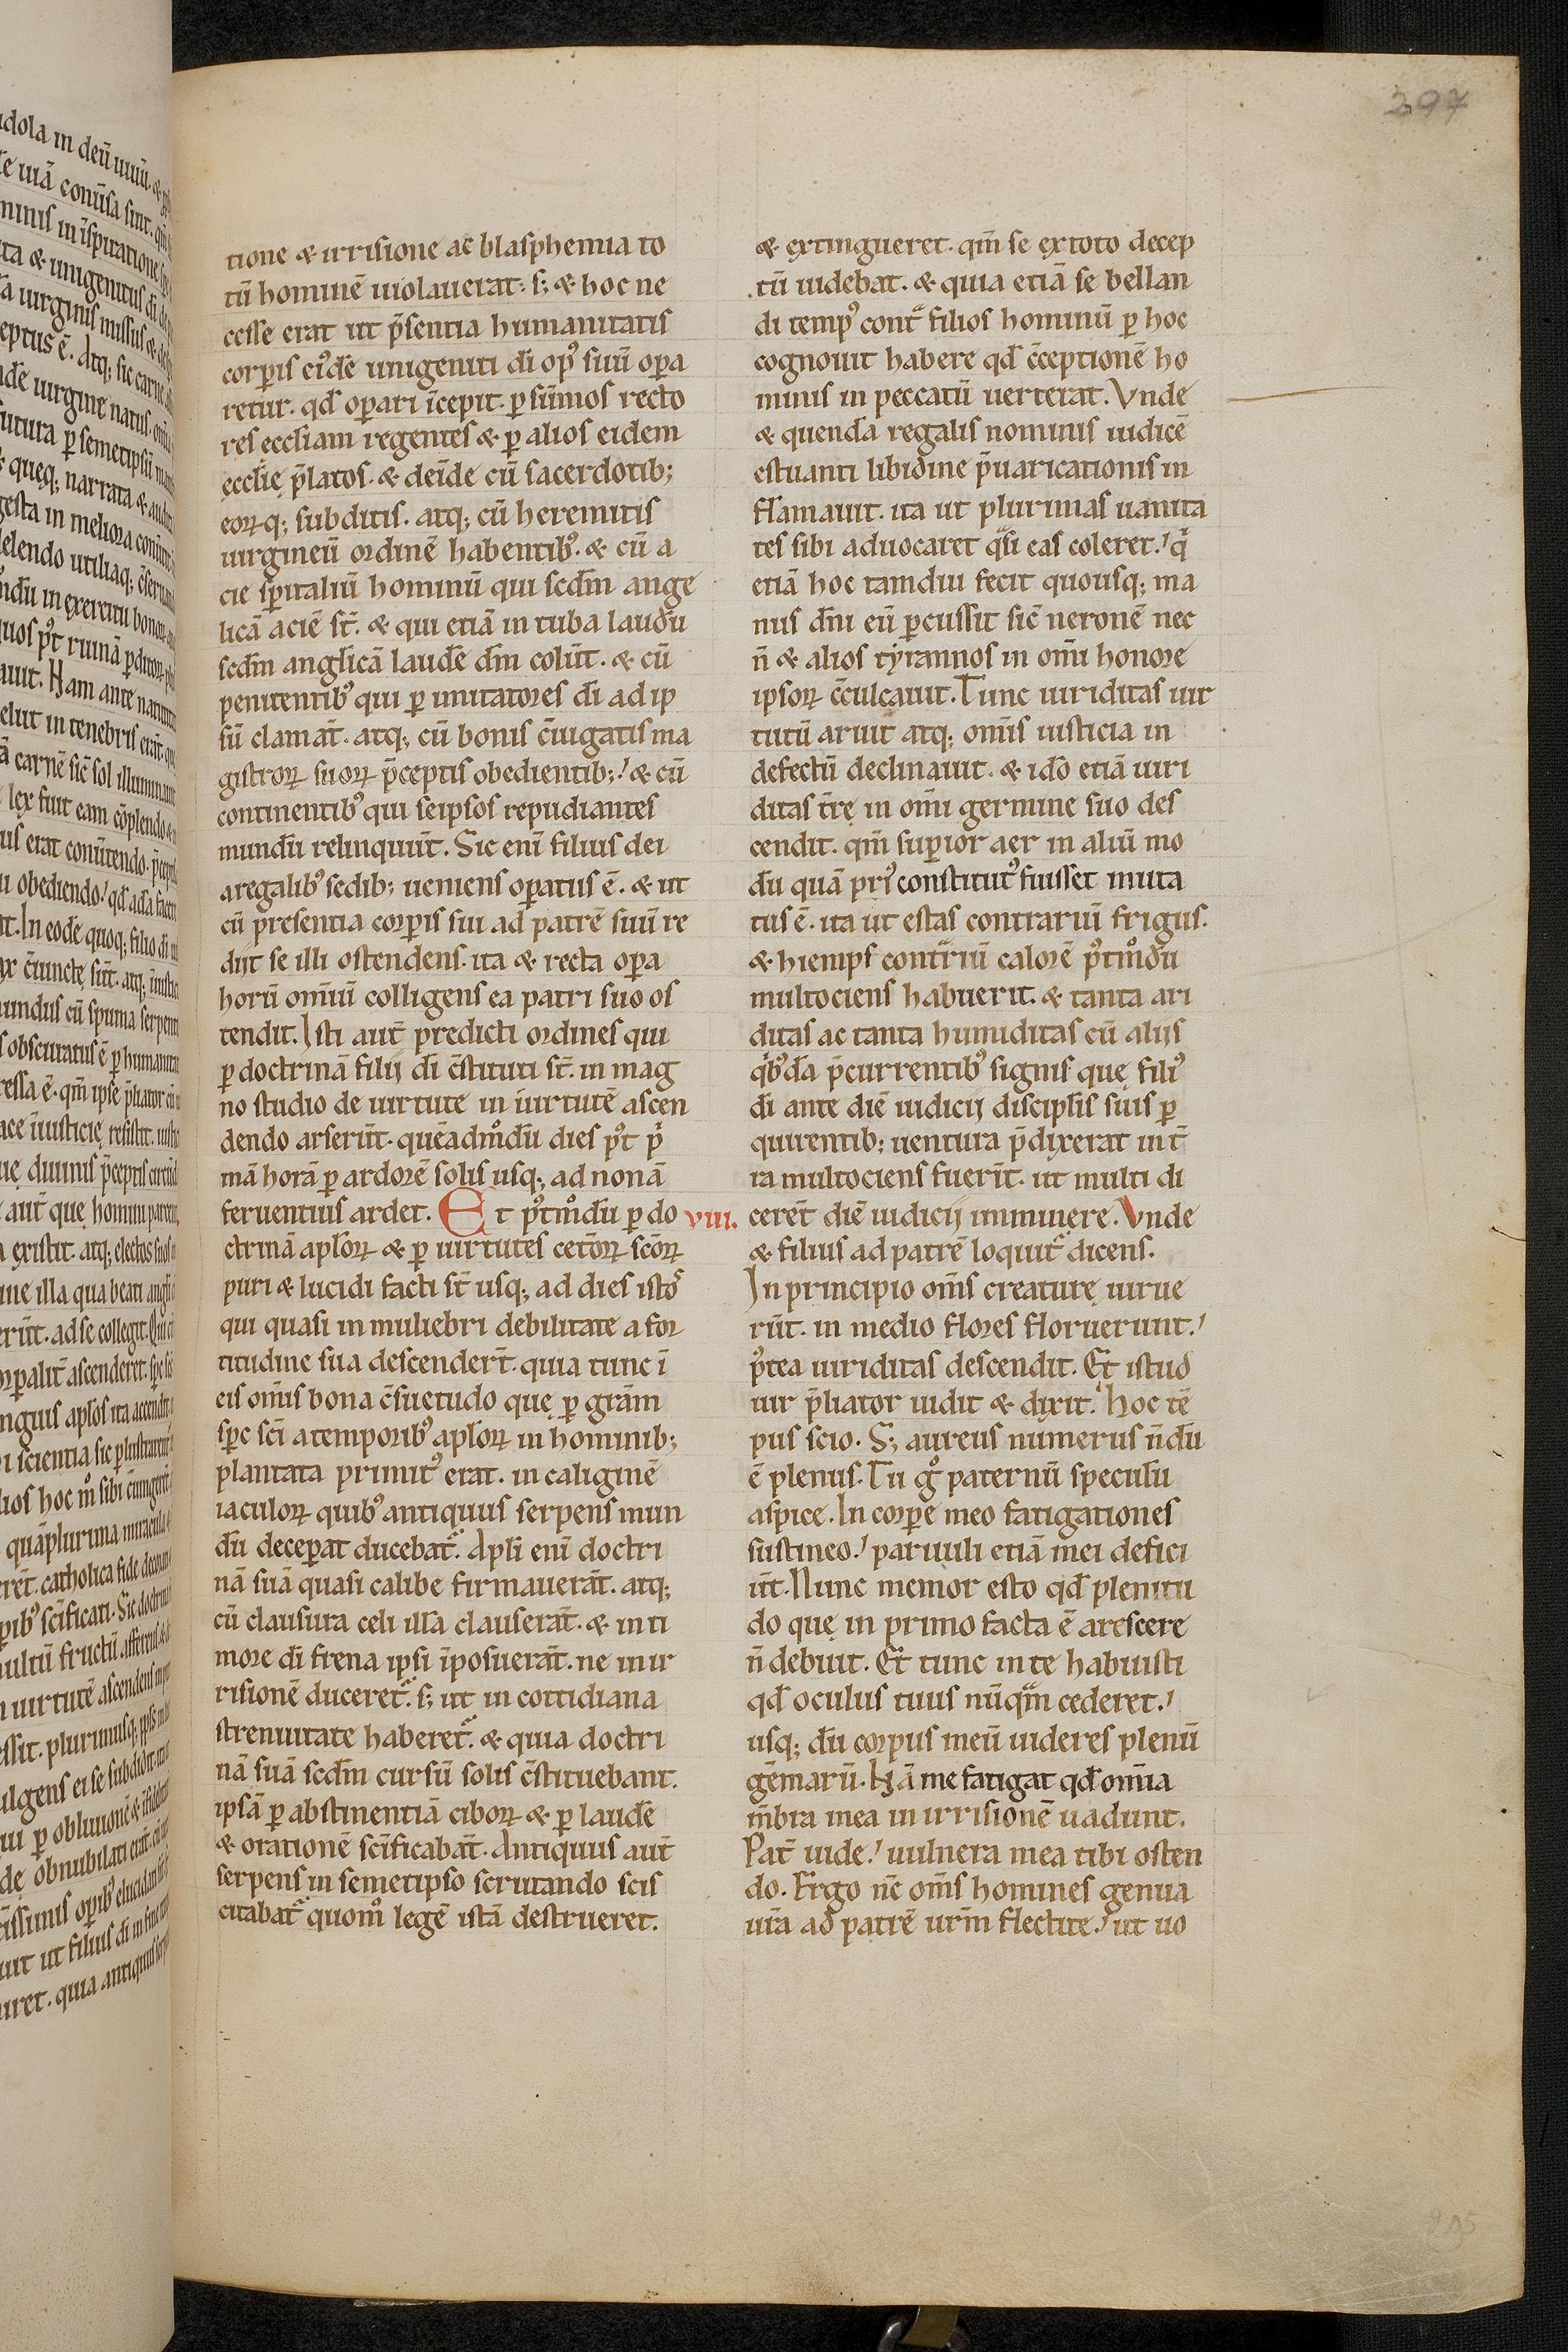 297
tione & irrisione ac blasphemia to
tū hominē uiolauerat. s; & hoc ne
cesse erat ut p̄sentia humanitatis
corꝑis eiꝰdē unigeniti dī opꝰ suū oꝑa
retur. qd̄ oꝑari īcepit. ꝑ sūmos recto
res eccl̄iam regentes & ꝑ alios eidem
ęccl̄ię p̄latos. & deīde cū sacerdotib;
eoꝝq; subditis. atq; cū heremitis
uirgineū ordinē habentibꝰ. & cū a
cie sp̄italiū hominū qui scd̄m ange
licā aciē st̄. & qui etiā in tuba laudū
scd̄m angl̄icā laudē dm̄ colūt. & cū
penitentibꝰ qui ꝑ imitatores dī ad ip
sū clamāt. atq; cū bonis c̄iugatis ma
gistroꝝ suoꝝ p̄ceptis obedientib; & cū
continentibꝰ qui seipsos repudiantes
mundū relinquūt. Sic eni filius dei
a regalibꝰ sedib; ueniens oꝑatus ē. & ut
cū presentia corꝑis sui ad patrē suū re
dijt se illi ostendens. ita & recta oꝑa
horū om̄iū colligens ea patri suo os
tendit. Isti aut̄ predicti ordines qui
ꝑ doctrinā filij dī c̄stituti st̄. in mag
no studio de uirtute in uirtutē ascen
dendo arserūt. quēadmͦdū dies pꝰt pͥ
mā horā ꝑ ardorē solis usq; ad nonā
feruentius ardet. Et pꝰtmͦdū ꝑ do viii.
ctrinā apl̄oꝝ & ꝑ uirtutes cet̄oꝝ sc̄oꝝ
puri & lucidi facti st̄ usq; ad dies istos
qui quasi in muliebri debilitate a for
titudine sua descendert̄. quia tunc ī
eis om̄is bona c̄suetudo quę ꝑ grām
sp̄c sc̄i a temporibꝰ apl̄oꝝ in hominib;
plantata primitꝰ erat. in caliginē
iaculoꝝ quibꝰ antiquus serpens mun
dū deceꝑat ducebat᷑. Apl̄i eni doctri
nā suā quasi calibe firmauerāt. atq;
cū clausura celi illā clauserāt. & in ti
more dī frena ipsi īposuerāt. ne in ir
risionē duceret᷑. s; ut in cottidiana
strenuitate haberet᷑. & quia doctri
nā suā scd̄m cursū solis c̄stituebant.
ipsā ꝑ abstinentiā ciboꝝ & ꝑ laudē
& orationē sc̄ificabāt. Antiquus aut̄
serpens in semetipso scrutando scis
citabat᷑ quom̄ legē istā destrueret.
& extingueret. qm̄ se ex toto decep
tū uidebat. & quia etiā se bellan
di tempꝰ cont᷑ filios hominū ꝑ hoc
cognouit habere qd̄ c̄ceptionē ho
minis in peccatū uerterat. Vnde
& quendā regalis nominis iudicē
estuanti libidine p̄uaricationis in
flamauit. ita ut plurimas uanita
tes sibi aduocaret qͣsi eas coleret. qͥ
etiā hoc tamdiu fecit quousq; ma
nus dn̄i eū ꝑcussit sic̄ neronē nec
n̄ & alios tyrannos in om̄i honore
ipsoꝝ c̄culcauit. Tunc uiriditas uir
tutū aruit atq; om̄is iusticia in
defectū declinauit. & ido etiā uiri
ditas t̄rę in om̄i germine suo des
cendit. qm̄ suꝑior aer in aliū mo
dū quā priꝰ constitutꝰ fuisset muta
tus ē. ita ut estas contrariū frigus.
& hiemps contͣriū calorē pꝰtmͦdū
multociens habuerit. & tanta ari
ditas ac tanta humiditas cū alijs
qͥbꝰdā p̄currentibꝰ signis quę filiꝰ
dī ante diē iudicij discipl̄is suis ꝑ
quirentib; uentura p̄dixerat in t̄
ra multociens fuerīt. ut multi di
cerēt diē iudicij imminere. Vnde
& filius ad patrē loquit᷑ dicens.
In principio om̄s creaturę uirue
rūt. in medio flores floruerunt.
pꝰtea uiriditas descendit. Et istud
uir p̄liator uidit & dixit. Hoc tē
pus scio. S; aureus numerus n̄dū
ē plenus. Tu gͦ paternū speculū
aspice. In corꝑe meo fatigationes
sustineo. paruuli etiā mei defici
ūt. Nunc memor esto qd̄ plenitu
do quę in primo facta ē arescere
n̄ debuit. Et tunc in te habuisti
qd̄ oculus tuus nūqͣm cederet.
usq; dū corpus meū uideres plenū
gēmarū. Nā me fatigat qd̄ om̄ia
m̄bra mea in irrisionē uadunt.
Pat̄ uide. uulnera mea tibi osten
do. Ergo nc̄ om̄s homines genua
ur̄a ad patrē ur̄m flectite. ut uo